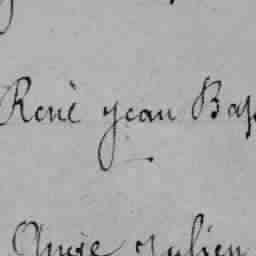 René jean Bap
julien